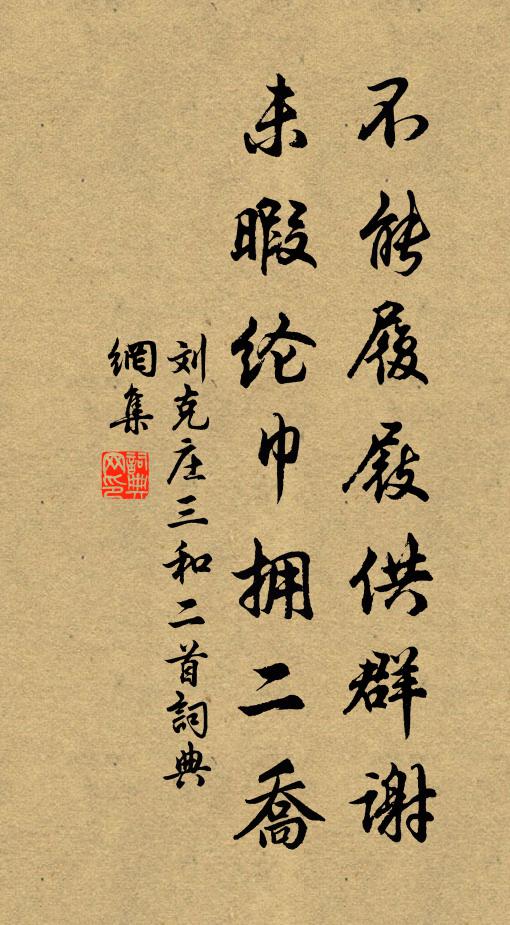 不能履屐供群谢
未暇纶巾拥二乔
刘克庄三和二首詞典
網集
詞典网印